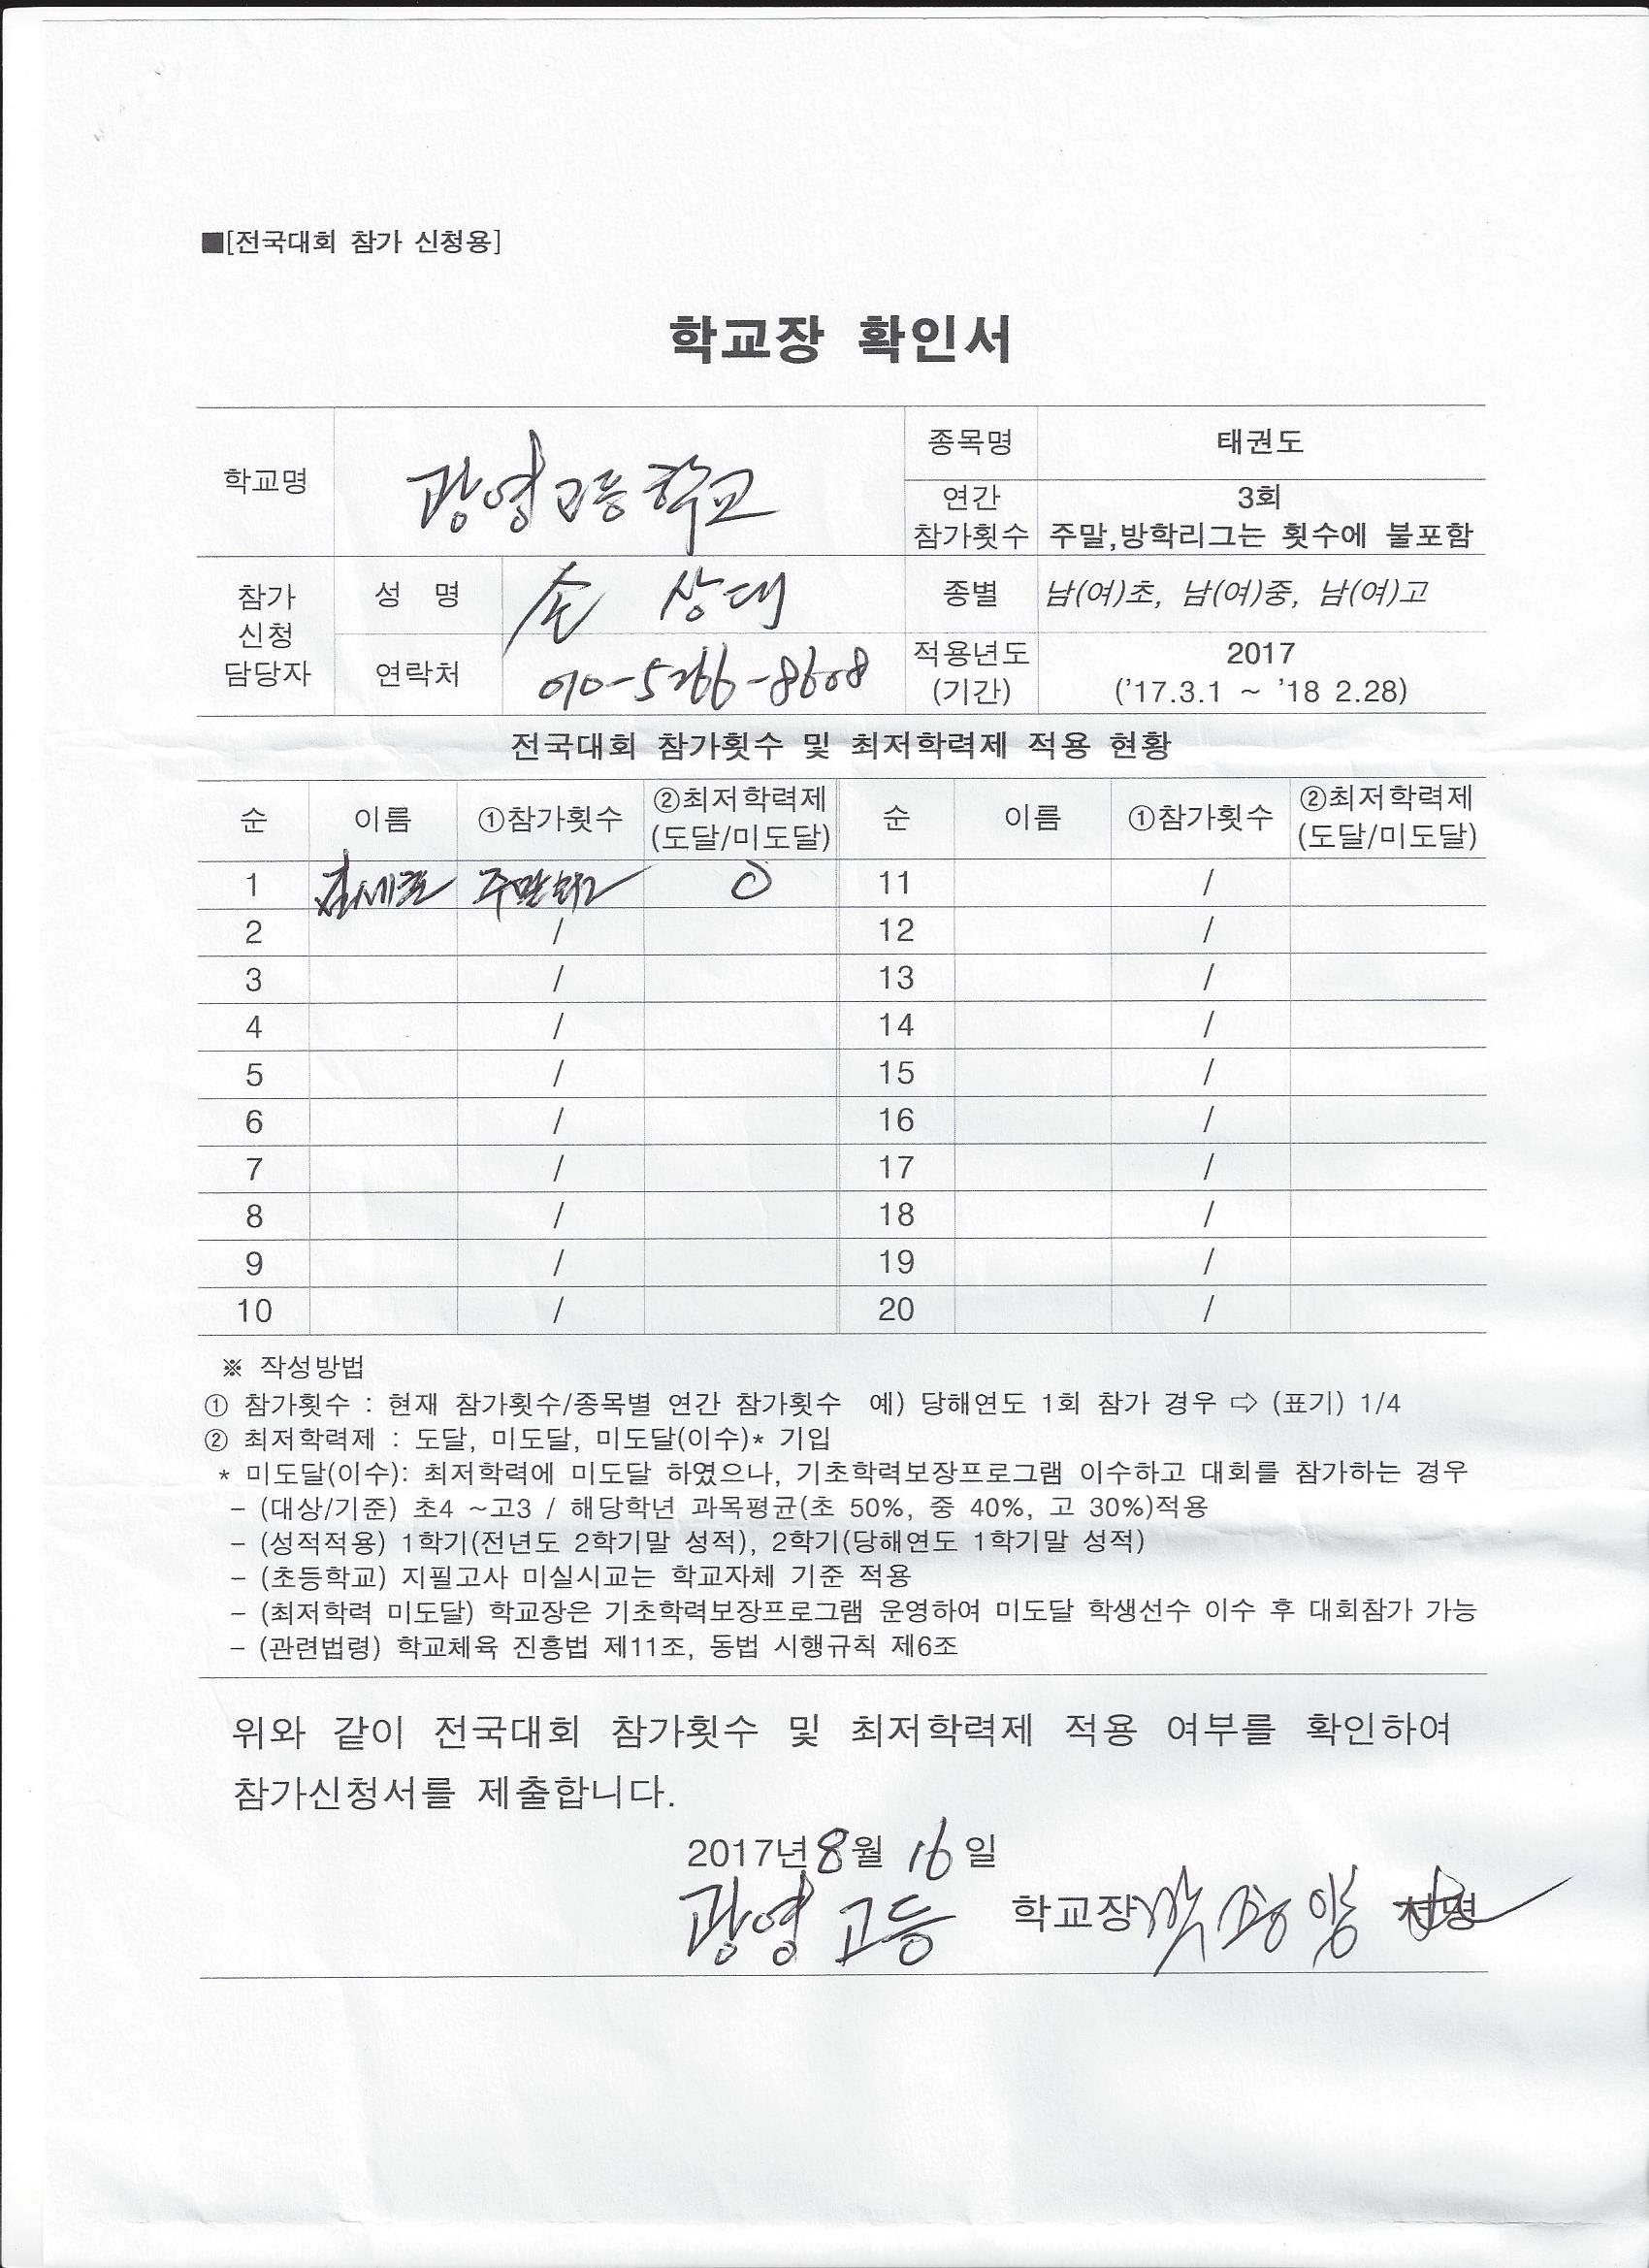 ■[전국대회 참가 신청용]
학교장 확인서
학교명 광영고등학교 종목명 태권도
연간 참가횟수 3회
주말,방학리그는 횟수에 불포함
참가 신청 담당자 성 명 손 상대 종별 남(여)초, 남(여)중, 남(여)고
연락처 010-5266-8608 적용년도 (기간) 2017
('17.3.1 ~ '18 2.28)
전국대회 참가횟수 및 최저학력제 적용 현황
순 이름 ①참가횟수 ②최저학력제 (도달/미도달) 순 이름 ①참가횟수 ②최저학력제 (도달/미도달)
1 ○ 11 /
2 / 12 /
3 / 13 /
4 / 14 /
5 / 15 /
6 / 16 /
7 / 17 /
8 / 18 /
9 / 19 /
10 / 20 /
※ 작성방법
① 참가횟수 : 현재 참가횟수/종목별 연간 참가횟수 예) 당해연도 1회 참가 경우 ⇨ (표기) 1/4
② 최저학력제 : 도달, 미도달, 미도달(이수)* 기입
* 미도달(이수): 최저학력에 미도달 하였으나, 기초학력보장프로그램 이수하고 대회를 참가하는 경우
- (대상/기준) 초4 ~고3 / 해당학년 과목평균(초 50%, 중 40%, 고 30%)적용
- (성적적용) 1학기(전년도 2학기말 성적), 2학기(당해연도 1학기말 성적)
- (초등학교) 지필고사 미실시교는 학교자체 기준 적용
- (최저학력 미도달) 학교장은 기초학력보장프로그램 운영하여 미도달 학생선수 이수 후 대회참가 가능
- (관련법령) 학교체육 진흥법 제11조, 동법 시행규칙 제6조
위와 같이 전국대회 참가횟수 및 최저학력제 적용 여부를 확인하여
참가신청서를 제출합니다.
2017년 8월 16일
광영 고등 학교장 서명